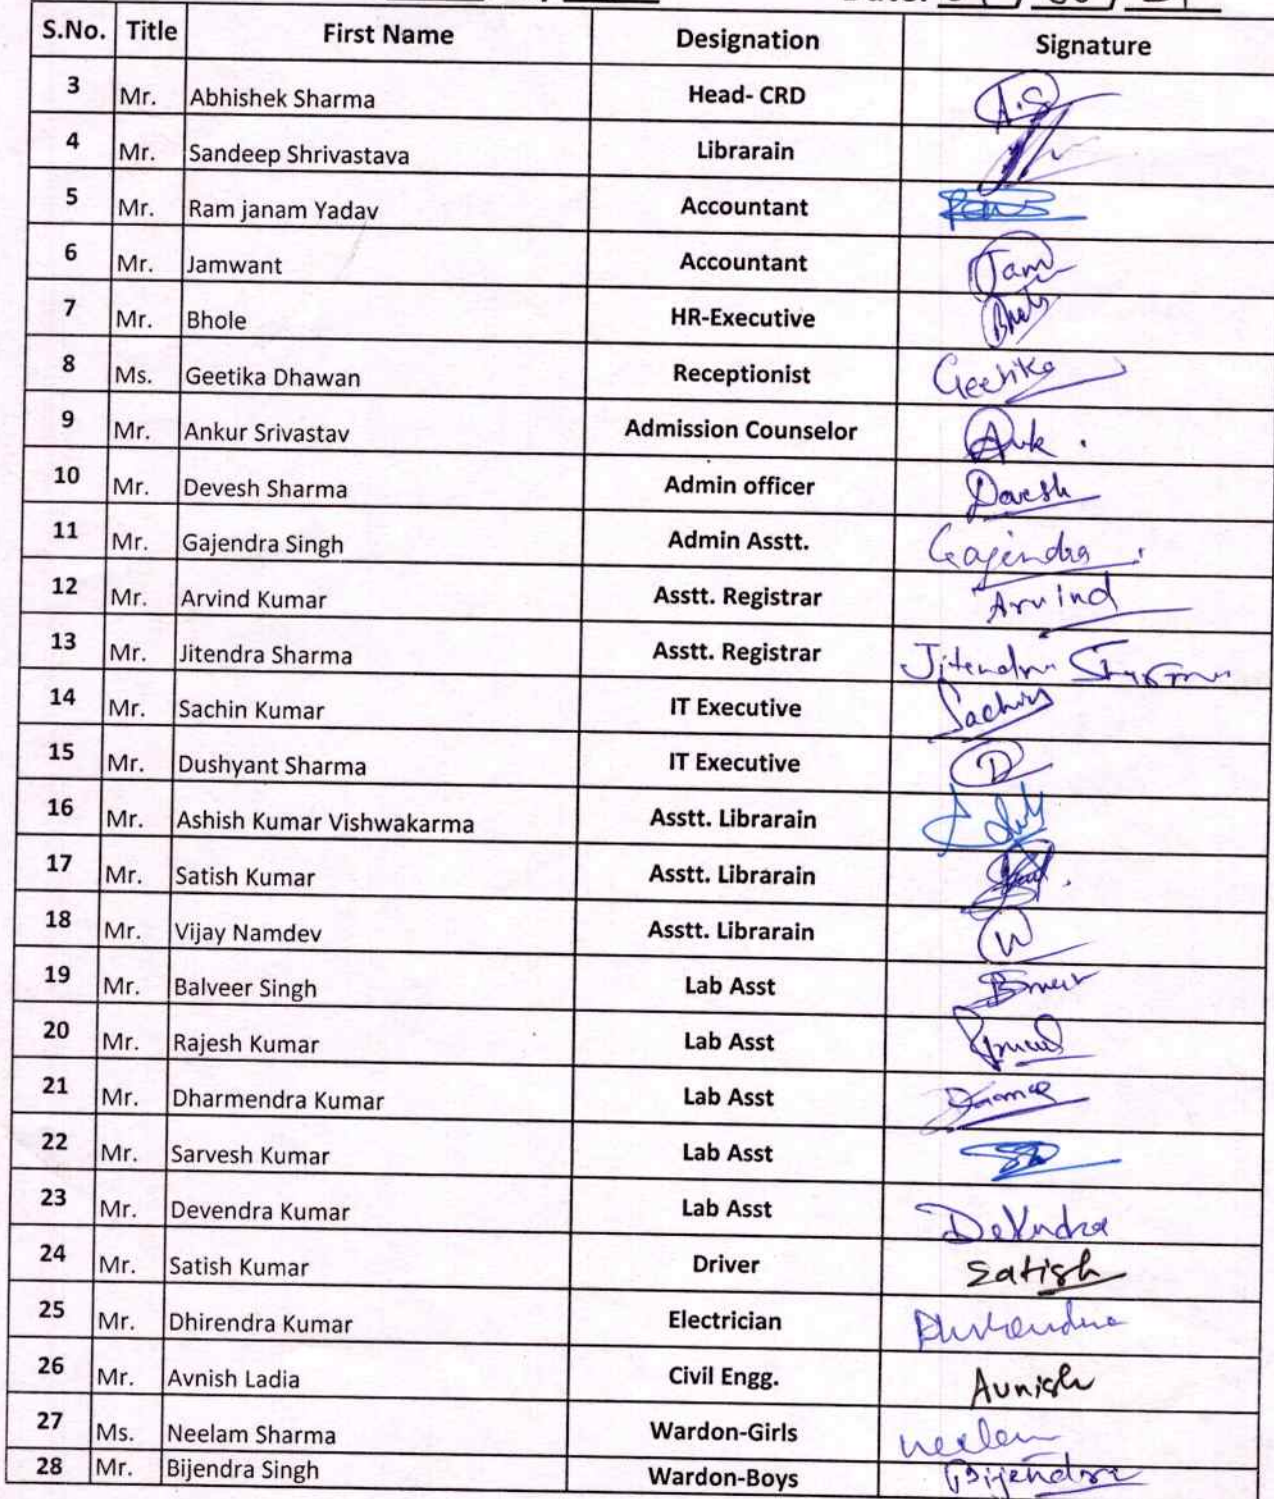 S.No. Title First Name Designation Signature
3 Mr. Abhishek Sharma Head- CRD A.S
4 Mr. Sandeep Shrivastava Librarain
5 Mr. Ram janam Yadav Accountant
6 Mr. Jamwant Accountant Jam
7 Mr. Bhole HR-Executive
8 Ms. Geetika Dhawan Receptionist Geetika
9 Mr. Ankur Srivastav Admission Counselor Ank
10 Mr. Devesh Sharma Admin officer Devesh
11 Mr. Gajendra Singh Admin Asstt. Gajendra
12 Mr. Arvind Kumar Asstt. Registrar Arvind
13 Mr. Jitendra Sharma Asstt. Registrar Jitendra Sharma
14 Mr. Sachin Kumar IT Executive Sachin
15 Mr. Dushyant Sharma IT Executive D
16 Mr. Ashish Kumar Vishwakarma Asstt. Librarain
17 Mr. Satish Kumar Asstt. Librarain
18 Mr. Vijay Namdev Asstt. Librarain
19 Mr. Balveer Singh Lab Asst
20 Mr. Rajesh Kumar Lab Asst
21 Mr. Dharmendra Kumar Lab Asst
22 Mr. Sarvesh Kumar Lab Asst
23 Mr. Devendra Kumar Lab Asst
24 Mr. Satish Kumar Driver Satish
25 Mr. Dhirendra Kumar Electrician
26 Mr. Avnish Ladia Civil Engg. Avnish
27 Ms. Neelam Sharma Wardon-Girls neelam
28 Mr. Bijendra Singh Wardon-Boys Bijendra